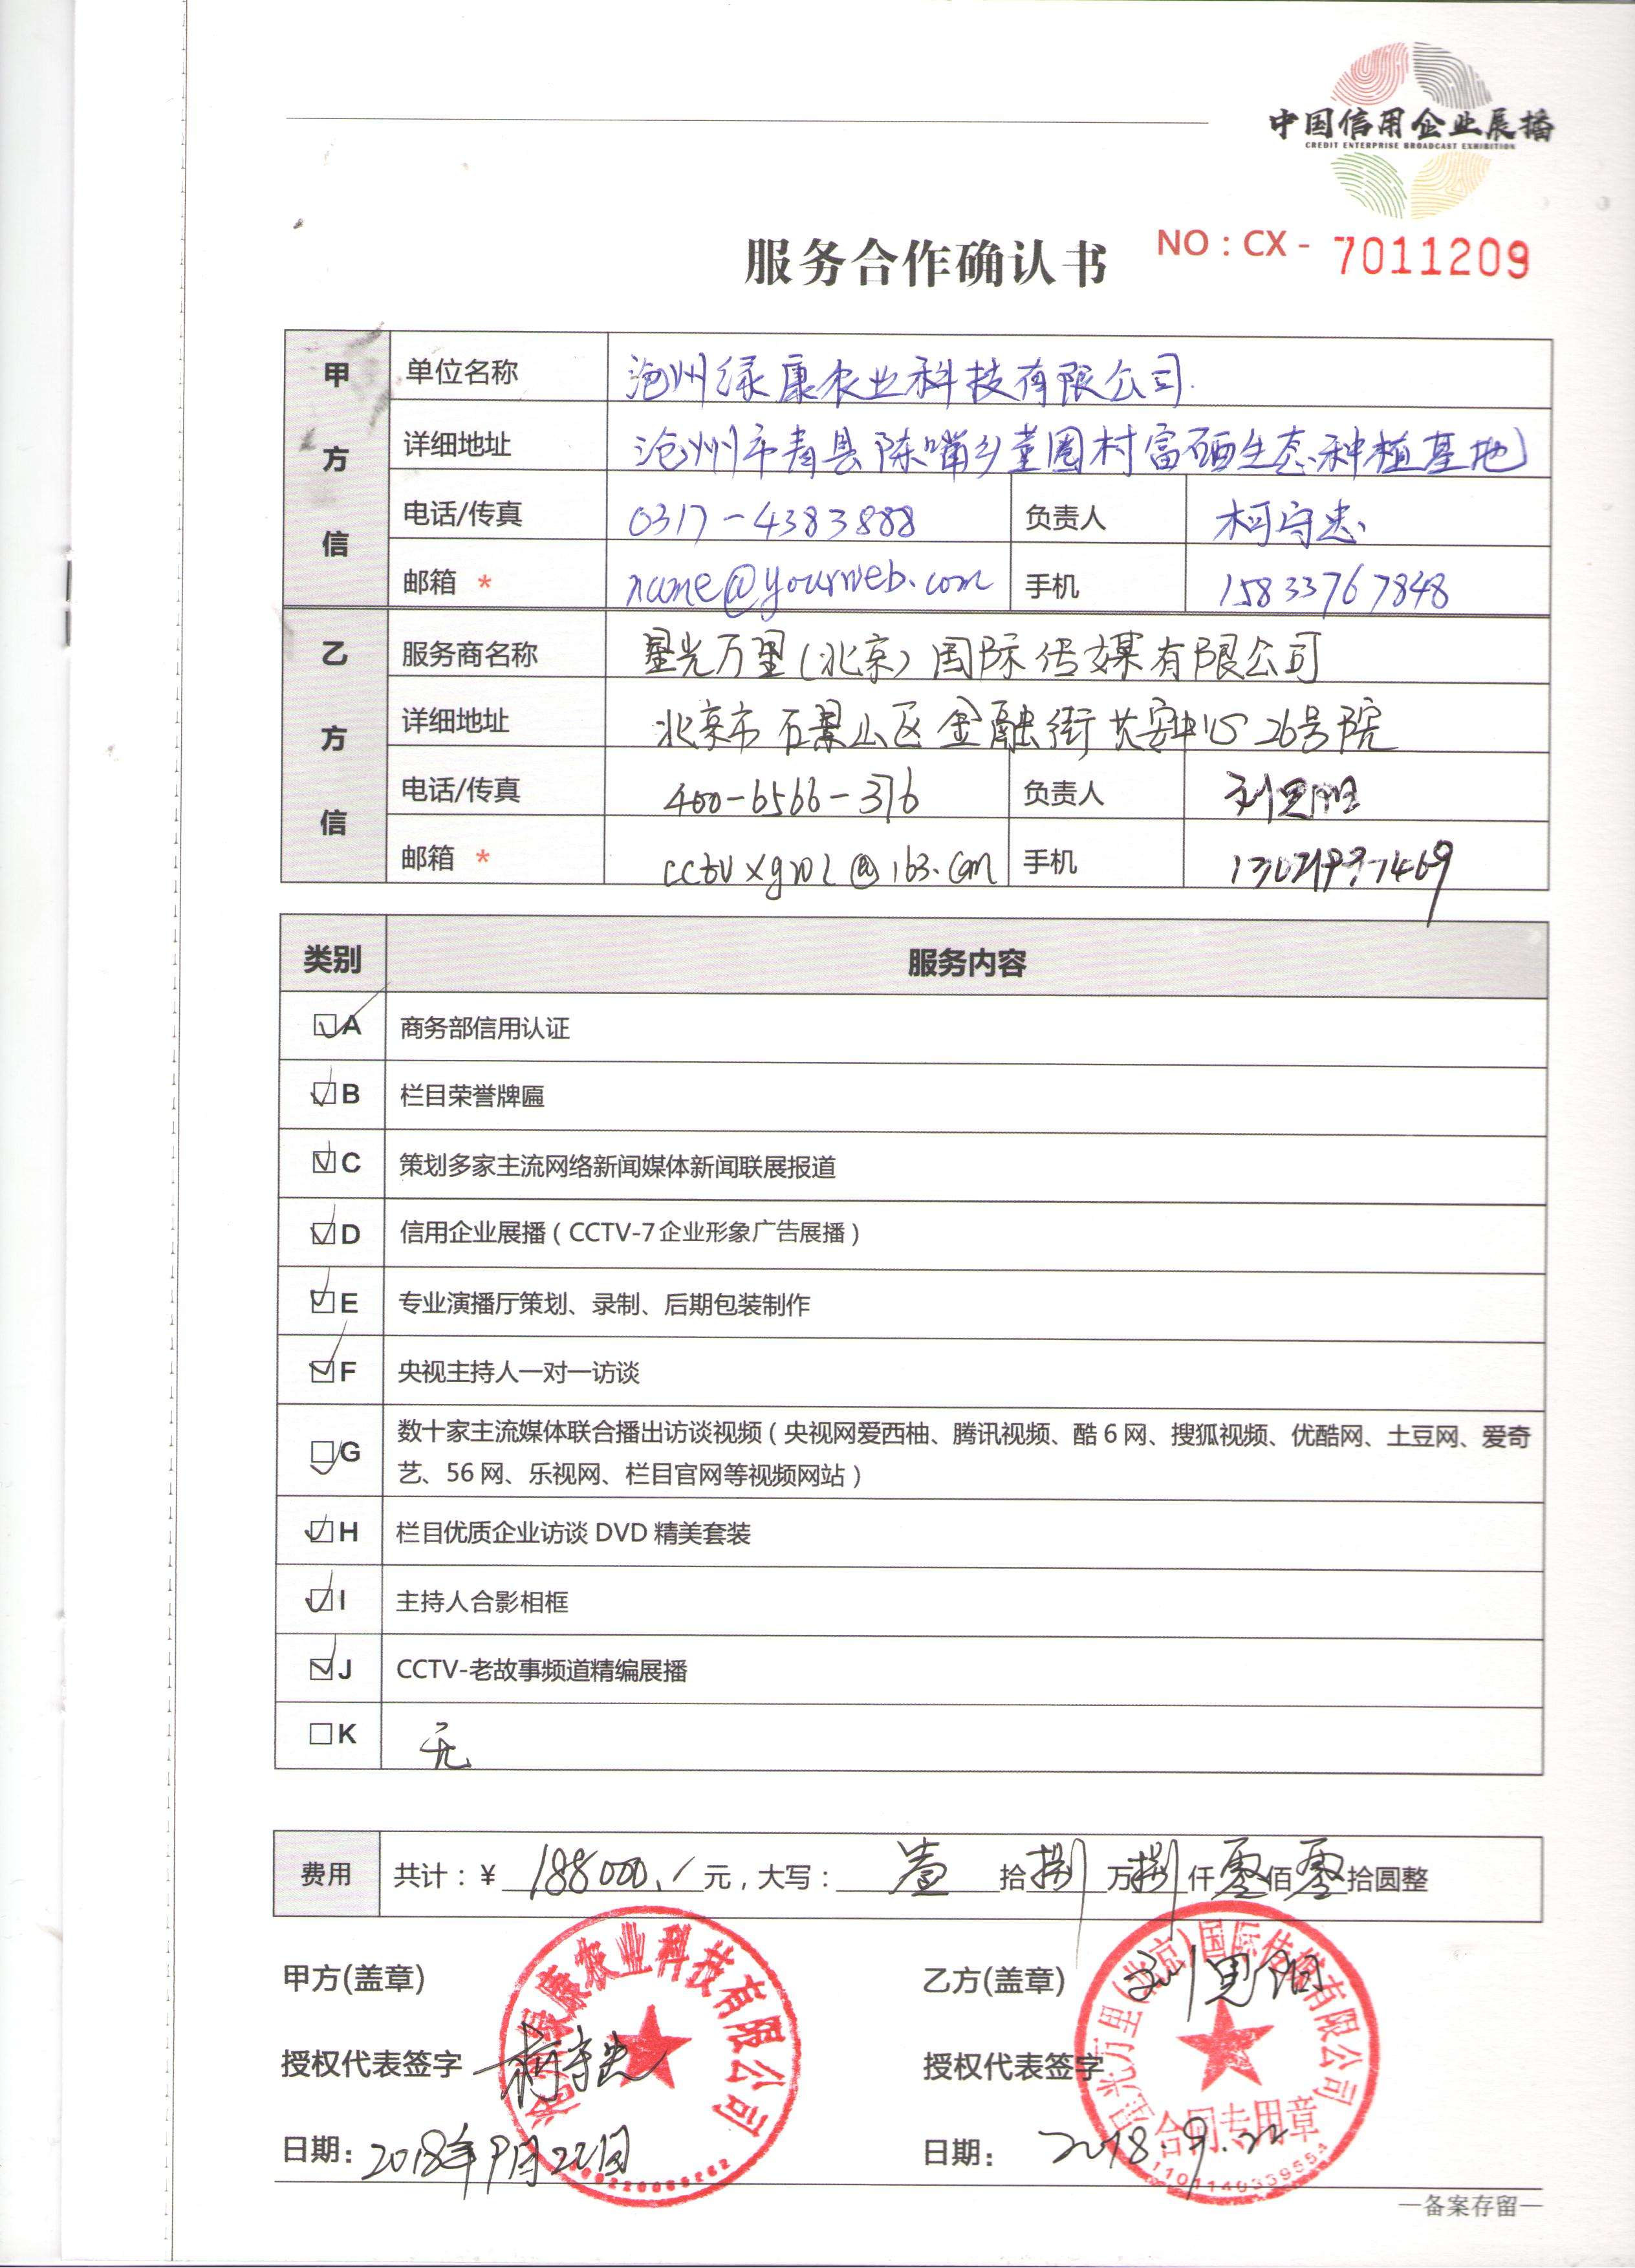 中国信用企业展播
CREDIT ENTERPRISE BROADCAST EXHIBITION
服务合作确认书 NO：CX - 7011209
甲方信
单位名称 沧州绿康农业科技有限公司
详细地址 沧州市青县陈嘴乡董圈村富硒生态种植基地
电话/传真 0317-4383888 负责人 柯守忠
邮箱 * name@yourweb.com 手机 15833767848
乙方信
服务商名称 星光万里(北京)国际传媒有限公司
详细地址 北京市石景山区金融街共安中心26号院
电话/传真 400-6566-376 负责人
邮箱 * cctvxgwl@163.com 手机
类别 服务内容
A 商务部信用认证
B 栏目荣誉牌匾
C 策划多家主流网络新闻媒体新闻联展报道
D 信用企业展播（CCTV-7企业形象广告展播）
E 专业演播厅策划、录制、后期包装制作
F 央视主持人一对一访谈
G 数十家主流媒体联合播出访谈视频（央视网爱西柚、腾讯视频、酷6网、搜狐视频、优酷网、土豆网、爱奇
艺、56网、乐视网、栏目官网等视频网站）
H 栏目优质企业访谈DVD精美套装
I 主持人合影相框
J CCTV-老故事频道精编展播
K 无
费用 共计：¥ 188000. 元，大写： 壹 拾 捌 万 捌 仟 零 佰 零 拾圆整
甲方(盖章) 乙方(盖章)
沧州绿康农业科技有限公司
星光万里(北京)国际传媒有限公司
合同专用章
授权代表签字 柯守忠 授权代表签字
日期：2018年9月22日 日期：2018.9.22
—备案存留—